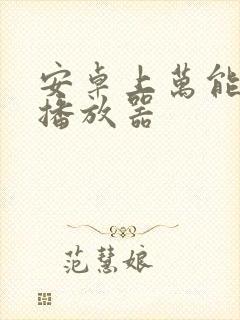 安卓上萬能
播放器
范慧娘